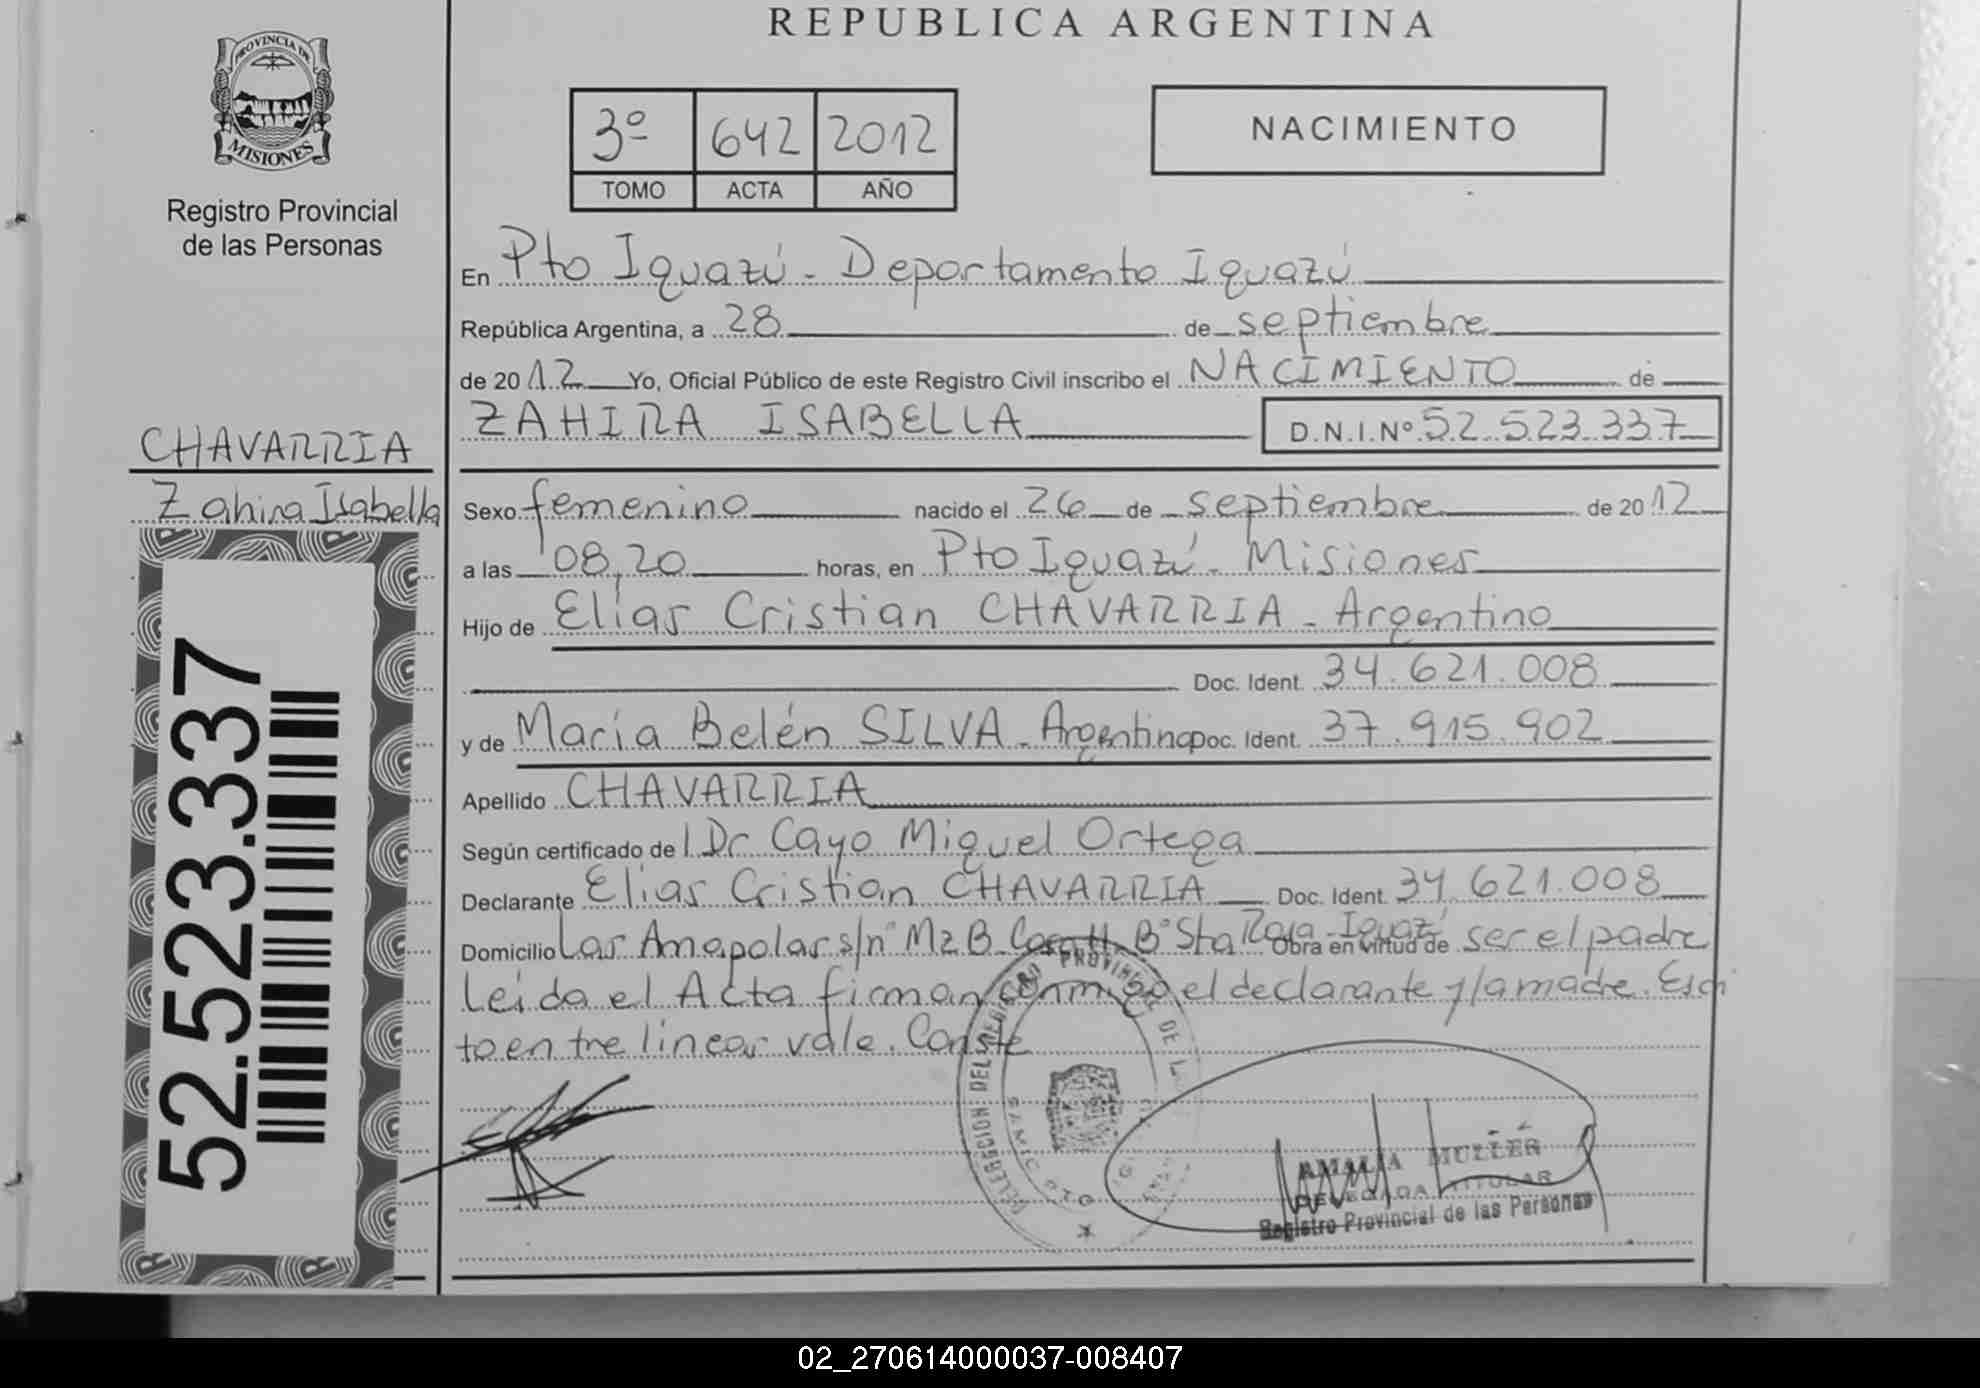 REPUBLICA ARGENTINA
PROVINCIA DE
MISIONES
Registro Provincial
de las Personas
3º 642 2012
TOMO ACTA AÑO
NACIMIENTO
En Pto Iguazú - Departamento Iguazú
República Argentina, a 28 de septiembre
de 2012 Yo, Oficial Público de este Registro Civil inscribo el NACIMIENTO de
ZAHIRA ISABELLA D.N.I.Nº 52.523.337
CHAVARRIA
Zahira Isabella
Sexo femenino nacido el 26 de septiembre de 2012
a las 08,20 horas, en Pto Iguazú - Misiones
Hijo de Elías Cristian CHAVARRIA - Argentino
Doc. Ident. 34.621.008
y de María Belén SILVA - Argentina Doc. Ident. 37.915.902
Apellido CHAVARRIA
Según certificado de l Dr Cayo Miguel Ortega
Declarante Elías Cristian CHAVARRIA Doc. Ident. 34.621.008
Domicilio Las Amapolas s/nº Mz B Casa Bº Sta Rosa - Iguazú Obra en virtud de ser el padre
Leída el Acta firman conmigo el declarante y/la madre. Escri
to entre líneas vale. Conste
52.523.337
AMALIA MULLER
DELEGADA TITULAR
Registro Provincial de las Personas
02_270614000037-008407